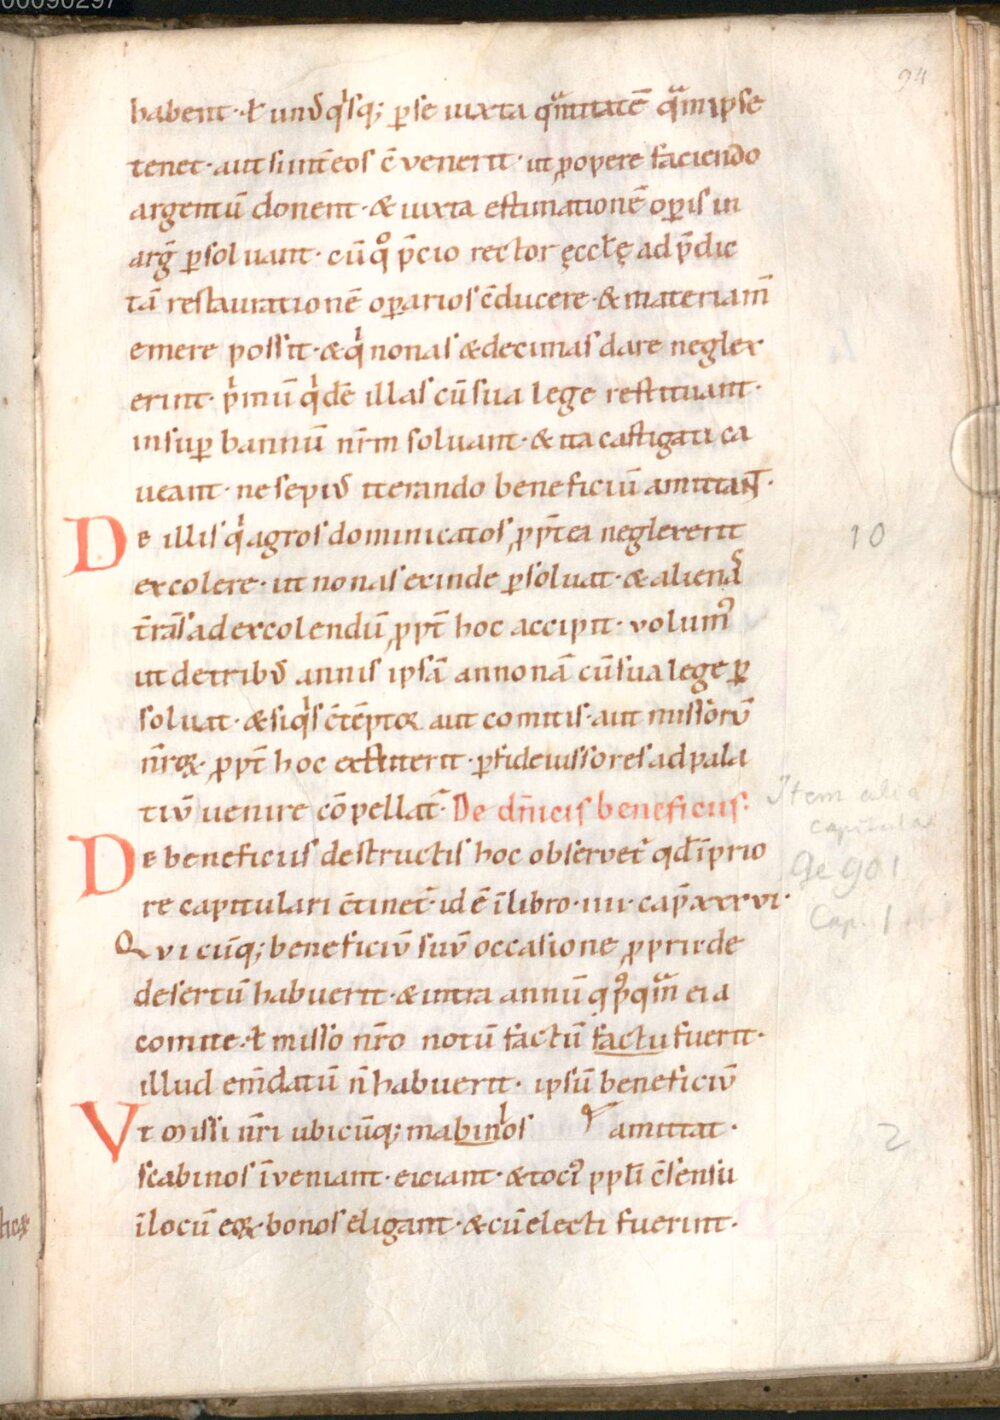 00090297
94
habent· ł unu᷒qͥsq; ꝑse iuxta qᷓntitatē qᷓm ipse
tenet· aut si int̄ eos c̄venerit· ut ꝓ opere faciendo
argentū donent· & iuxta estimationē oꝑis in
arḡ ꝑsolvant· cū qͦ p̄cio rector ęccłę ad p̄dic
tā restaurationē oꝑarios c̄ducere· & materiam̄
emere possit· & qͥ nonas & decimas dare neglex
erint· p̍mū qͥdē illas cū sua lege restituant·
insuꝑ bannū nr̄m solvant· & ita castigati ca
veant· ne sepiu᷒ iterando beneficiū amittant·
De illis qͥ agros dominicatos ꝓpt̄ea neglexerit
excolere· ut nonas exinde ꝑsoluat· & aliena᷒
t̄ras ad excolendū ꝓpt̄ hoc accipit· volum᷒
ut de tribu᷒ annis ipsā annonā cū sua lege ꝑ
soluat· & si qͥs c̄tēptoꝝ aut comitis· aut missorū
n̄roꝝ· ꝓpt̄ hoc extiterit· ꝑ fideiussores ad pala
tiū uenire cōpellat̄· De dn̄icis beneficiis:
De beneficiis destructis hoc obseruet̄ qđ ī prio
re capitulari c̄tinet̄· id ē ī libro· iiii· cap̄ xxxvi·
Qvicūq; beneficiū suū occasione ꝓprii de
desertū habuerit· & intra annū qͦ p᷒qᷓm ei a
comite· ł misso nr̄o notū factū factu fuerit·
illud em̄datū n̄ habuerit· ipsū beneficiū
Vt missi nr̄i ubicūq; mabinłos amittat·
scabinos īveniant· eiciant· & toci᷒ ppłi c̄sensu
ī locū eoꝝ· bonos eligant· & cū electi fuerint·
10
Item alia
capitula
Ge 901
Cap. 1
2